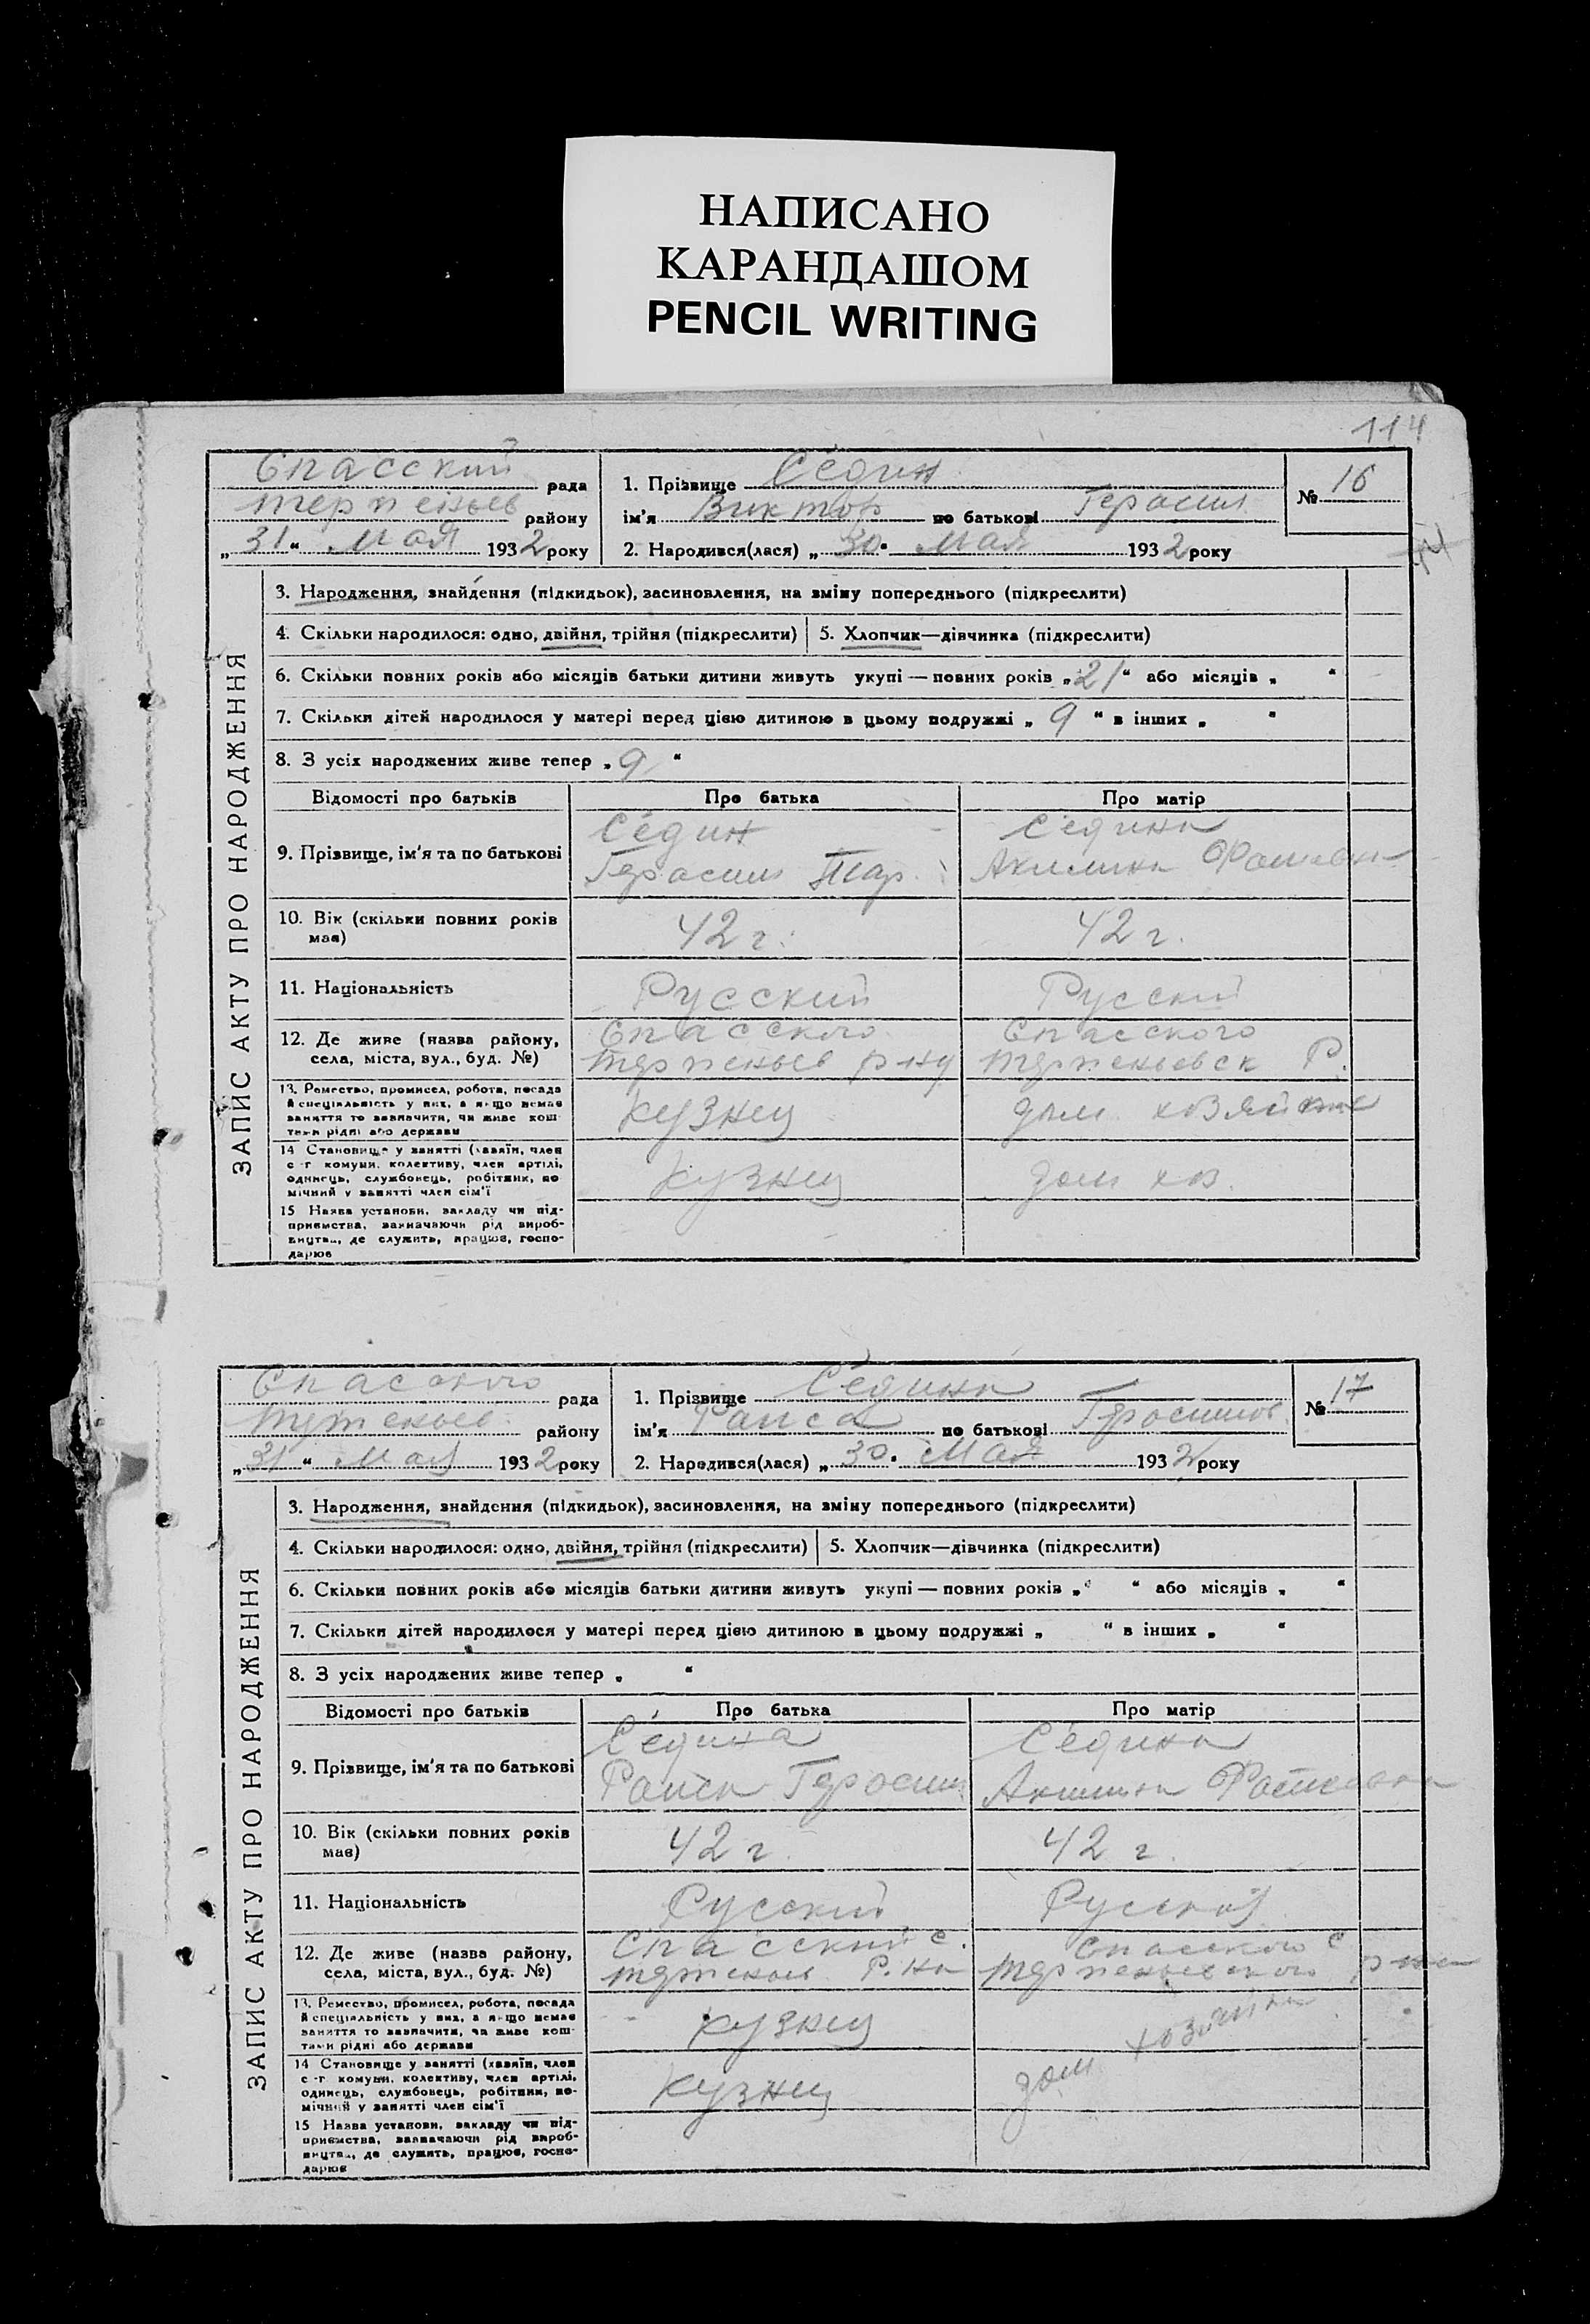 НАПИСАНО
КАРАНДАШОМ
PENCIL WRITING
114
Спасский рада
терпеньев району
„31“ Мая 1932 року
1. Прізвище Седин
ім'я Виктор по батькові Герасим
2. Народився(лася) „30“ Мая 1932 року
№ 16
ЗАПИС АКТУ ПРО НАРОДЖЕННЯ
3. Народження, знайдення (підкидьок), засиновлення, на зміну попереднього (підкреслити)
4. Скільки народилося: одно, двійня, трійня (підкреслити) 5. Хлопчик—дівчинка (підкреслити)
6. Скільки повних років або місяців батьки дитини живуть укупі — повних років „21“ або місяців „ “
7. Скільки дітей народилося у матері перед цією дитиною в цьому подружжі „9“ в інших „ “
8. З усіх народжених живе тепер „9“
Відомості про батьків Про батька Про матір
9. Прізвище, ім'я та по батькові
Седин
Герасим
Седина
Акилина
10. Вік (скільки повних років має) 42 г. 42 г.
11. Національність Русский Русский
12. Де живе (назва району, села, міста, вул., буд. №)
Спасского
терпеньев р-ну
Спасского
терпеньевск Р.
13. Ремество, промисел, робота, посада й спеціяльність у них, а якщо немає заняття то зазначити, чи живе коштами рідні або держави
кузнец
дом хозяйка
14 Становище у занятті (хазяїн, член с-г комуни, колективу, член артілі, одинець, службовець, робітник, помічний у занятті член сім'ї
кузнец
дом хоз.
15 Назва установи, закладу чи підприємства, зазначаючи рід виробництва, де служить, працює, господарює
Спасского рада
терпеньев району
„31“ Мая 1932 року
1. Прізвище Седина
ім'я Раиса по батькові Герасимов
2. Народився(лася) „30“ Мая 1932 року
№ 17
ЗАПИС АКТУ ПРО НАРОДЖЕННЯ
3. Народження, знайдення (підкидьок), засиновлення, на зміну попереднього (підкреслити)
4. Скільки народилося: одно, двійня, трійня (підкреслити) 5. Хлопчик—дівчинка (підкреслити)
6. Скільки повних років або місяців батьки дитини живуть укупі — повних років „ “ або місяців „ “
7. Скільки дітей народилося у матері перед цією дитиною в цьому подружжі „ “ в інших „ “
8. З усіх народжених живе тепер „ “
Відомості про батьків Про батька Про матір
9. Прізвище, ім'я та по батькові
Седина
Раиса Герасим
Седина
Акилина
10. Вік (скільки повних років має) 42 г. 42 г.
11. Національність Русский Русской
12. Де живе (назва району, села, міста, вул., буд. №)
Спасский с.
терпеньев Р.на
Спасского с
терпеньевского р-на
13. Ремество, промисел, робота, посада й спеціяльність у них, а якщо немає заняття то зазначити, чи живе коштами рідні або держави
кузнец
дом хозяйка
14 Становище у занятті (хазяїн, член с-г комуни, колективу, член артілі, одинець, службовець, робітник, помічний у занятті член сім'ї
кузнец
15 Назва установи, закладу чи підприємства, зазначаючи рід виробництва, де служить, працює, господарює